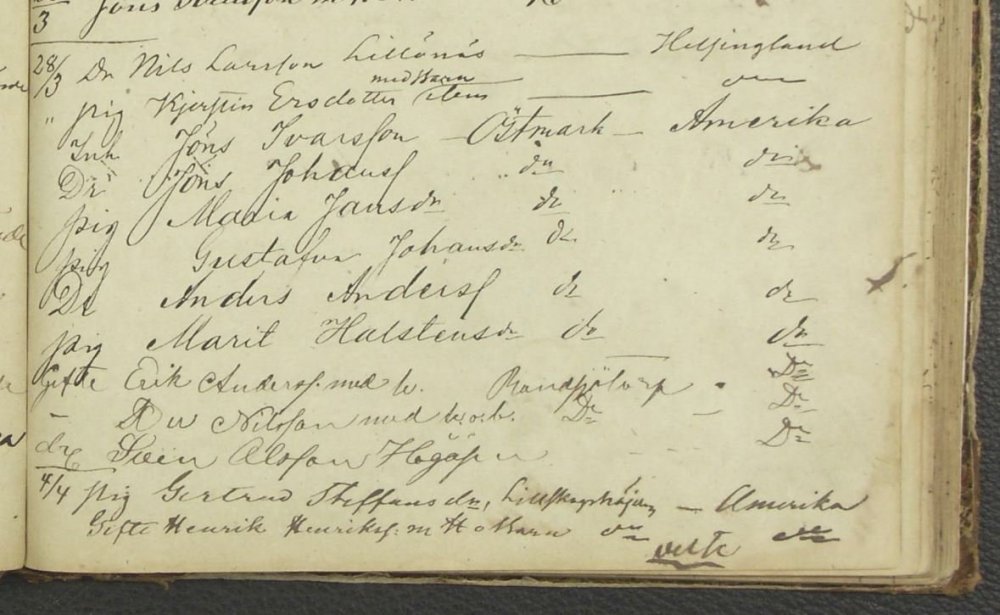 3
28/3 Dr Nils Larsson Lillönäs — Helsingland
med Barn
" pig Kjerstin Ersdotter — do
Inh Jöns Ivarsson — Östmark — Amerika
Dr Jöns Johansf do do
pig Maria Jansdr do do
pig Gustafva Johansdr do do
Dr Anders Andersf do do
pig Marit Halstensdr do do
Gifte Erik Andersf. med h. Randsjötorp Do
— Nilsson med h. o. b. Do — Do
do Sven Olofson Do
4/4 pig Gertrud Steffansdr, — Amerika
Gifte Henrik Henriksf. m H o Barn do do